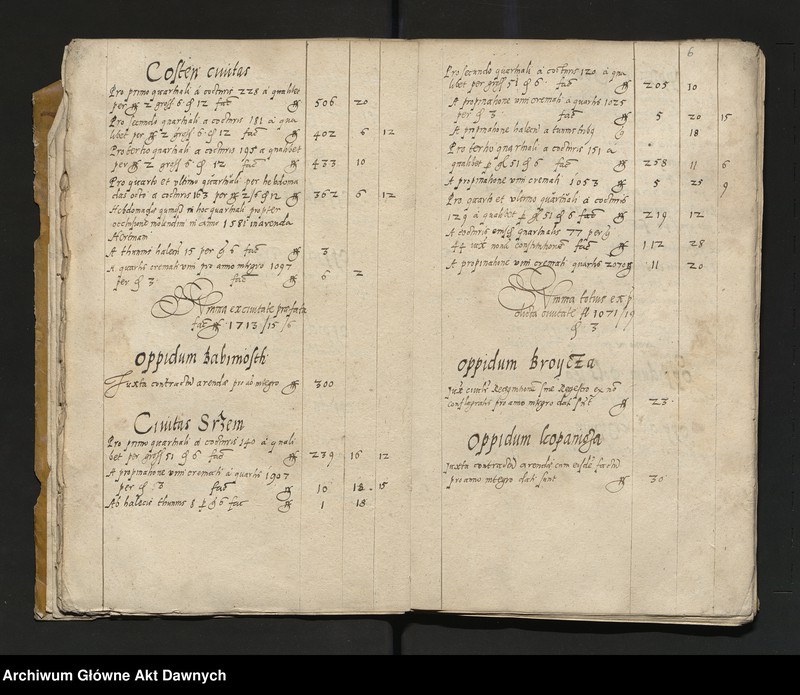 Costen civitas
Pro primo quarthali a coctoris 225 a qualibet
per 2 gross 6 12 fac 506 20
Pro secundo quarthali a coctoris 181 a qua
libet per 2 gross 6 12 fac 402 6 12
Pro tertio quarthali a coctoris 195 a qualibet
per 2 gross 6 12 fac 433 10
Pro quarto et ultimo quarthali per hebdoma
das octo a coctoris 163 per 2/6 12 362 6 12
Hebdomadis in hoc quarthali propter
1581
A thunnis halecu 15 per 6 fac 3
A quartis cremati vini pro anno integro 1097
per 3 fac 6 2
Summa ex civitate prefata
fac 1713/15/6
Oppidum Babimosth
Juxta contractu arendae pro anno integro 300
Civitas Srzem
Pro primo quarthali a coctoris 140 a quali
bet per gross 51 6 fac 239 16 12
A propinatione vini cremati a quartis 1907
per 3 fac 10 18 15
Ab halecis thunnis 8 6 fac 1 18
6
Pro secundo quarthali a coctoris 120 a qua
libet per gross 51 6 fac 205 10
A propinatione vini cremati a quartis 1025
per 3 fac 5 20 15
A propinatione halecu a tunnis 18
Pro tertio quarthali a coctoris 151 a
qualibet 51 6 fac 258 11 6
A propinatione vini cremati 1053 5 25 9
Pro quarto et ultimo quarthali a coctoris
129 a qualibet 51 6 fac 219 12
A coctoris quarthalis 77 per
44 iux nova constitutione fac 112 28
A propinatione vini cremati quartis 2070 11 20
Summa totius ex
dicta civitate fl 1071/19
3
Oppidum Broycza
pro anno integro 23
Oppidum Kopanicza
Juxta contractu arendae cum
pro anno integro dati sunt 30
Archiwum Główne Akt Dawnych